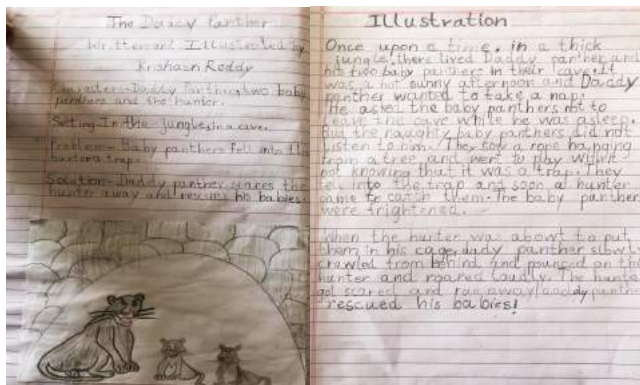 The Daddy Panther
Written and Illustrated by
Krishaan Reddy
Characters-Daddy Panther, two baby
panthers and the hunter.
Setting-In the jungle, in a cave.
Problem-Baby panthers fell into the
hunters trap.
Solution-Daddy panther scares the
hunter away and rescues his babies.
Illustration
Once upon a time, in a thick
jungle, there lived Daddy panther and
his two baby panthers in their cave. It
was a hot sunny afternoon and Daddy
panther wanted to take a nap.
He asked the baby panthers not to
leave the cave while he was asleep.
But the naughty baby panthers did not
listen to him. They saw a rope hanging
from a tree and went to play with it
not knowing that it was a trap. They
fell into the trap and soon a hunter
came to catch them. The baby panthers
were frightened.
When the hunter was about to put
them in his cage, dady panther slowly
crawled from behind and pounced on the
hunter and roared loudly. The hunter
got scared and ran away daddy panther
rescued his babies!